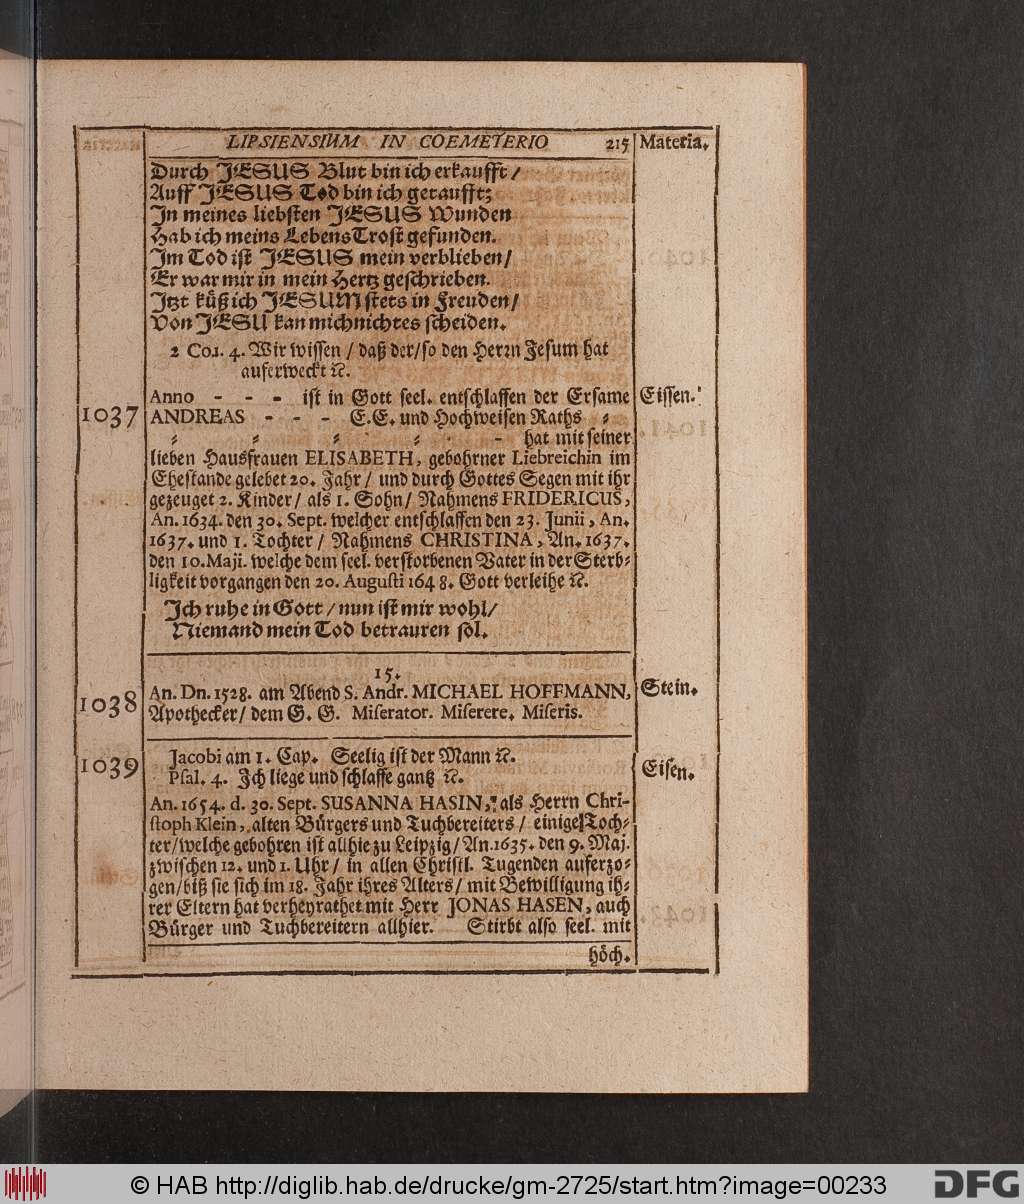 LIPSIENSIUM IN COEMETERIO 215 Materia.
Durch JESUS Blut bin ich erkaufft /
Auff JESUS Tod bin ich getaufft;
In meines liebsten JESUS Wunden
Hab ich meins Lebens Trost gefunden.
Im Tod ist JESUS mein verblieben /
Er war mir in mein Hertz geschrieben.
Itzt küß ich JESUM stets in Freuden /
Von JESU kan mich nichtes scheiden.
2 Cor. 4. Wir wissen / daß der / so den Herrn Jesum hat
auferweckt ꝛc.
Anno - - - ist in Gott seel. entschlaffen der Ersame Eissen.
1037 ANDREAS - - - E. E. und Hochweisen Raths ⸗
⸗ ⸗ ⸗ ⸗ - hat mit seiner
lieben Hausfrauen ELISABETH, gebohrner Liebreichin im
Ehestande gelebet 20. Jahr / und durch Gottes Segen mit ihr
gezeuget 2. Kinder / als 1. Sohn / Nahmens FRIDERICUS,
An. 1634. den 30. Sept. welcher entschlaffen den 23. Junii, An.
1637. und 1. Tochter / Nahmens CHRISTINA, An. 1637.
den 10. Maji. welche dem seel. verstorbenen Vater in der Sterb⸗
ligkeit vorgangen den 20. Augusti 1648. Gott verleihe ꝛc.
Ich ruhe in Gott / nun ist mir wohl /
Niemand mein Tod betrauren sol.
15.
1038 An. Dn. 1528. am Abend S. Andr. MICHAEL HOFFMANN, Stein.
Apothecker / dem G. G. Miserator. Miserere. Miseris.
1039 Jacobi am 1. Cap. Seelig ist der Mann ꝛc. Eisen.
Psal. 4. Ich liege und schlaffe gantz ꝛc.
An. 1654. d. 30. Sept. SUSANNA HASIN, als Herrn Chri-
stoph Klein, alten Bürgers und Tuchbereiters / einige Toch⸗
ter / welche gebohren ist allhie zu Leipzig / An. 1635. den 9. Maj.
zwischen 12. und 1. Uhr / in allen Christl. Tugenden auferzo⸗
gen / biß sie sich im 18. Jahr ihres Alters / mit Bewilligung ih⸗
rer Eltern hat verheyrathet mit Herr JONAS HASEN, auch
Bürger und Tuchbereitern allhier. Stirbt also seel. mit
höch.
© HAB http://diglib.hab.de/drucke/gm-2725/start.htm?image=00233
DFG